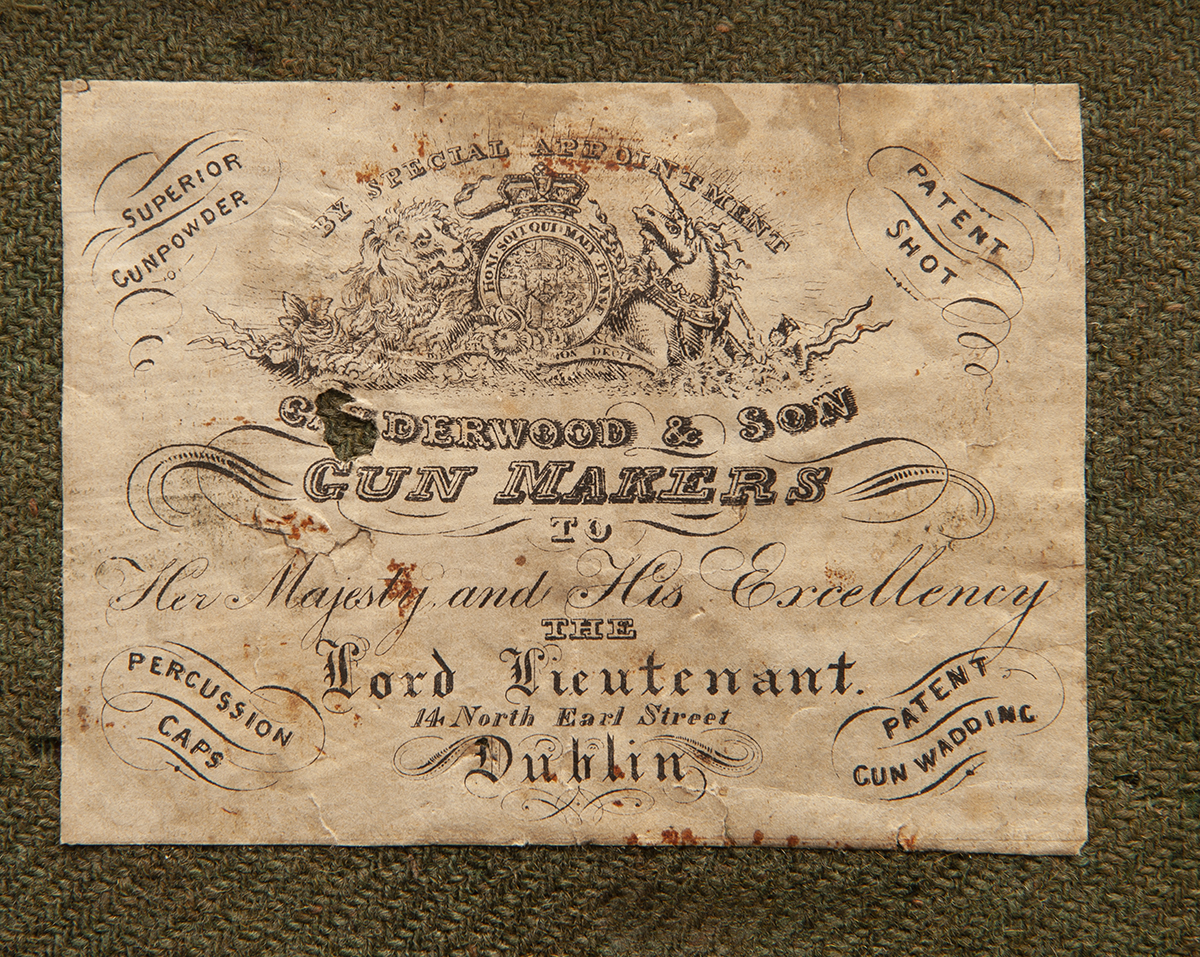 SUPERIOR
GUNPOWDER
BY SPECIAL APPOINTMENT
PATENT
SHOT
HONI. SOIT. QUI. MAL Y PENSE
MON DROIT
DERWOOD & SON
GUN MAKERS
TO
Her Majesty, and His Excellency
THE
Lord Lieutenant.
14 North Earl Street
Dublin
PERCUSSION
CAPS
PATENT
GUN WADDING